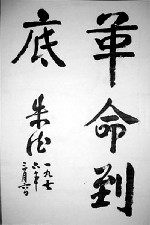 革命到
底
朱德
一九七
年
三月六日